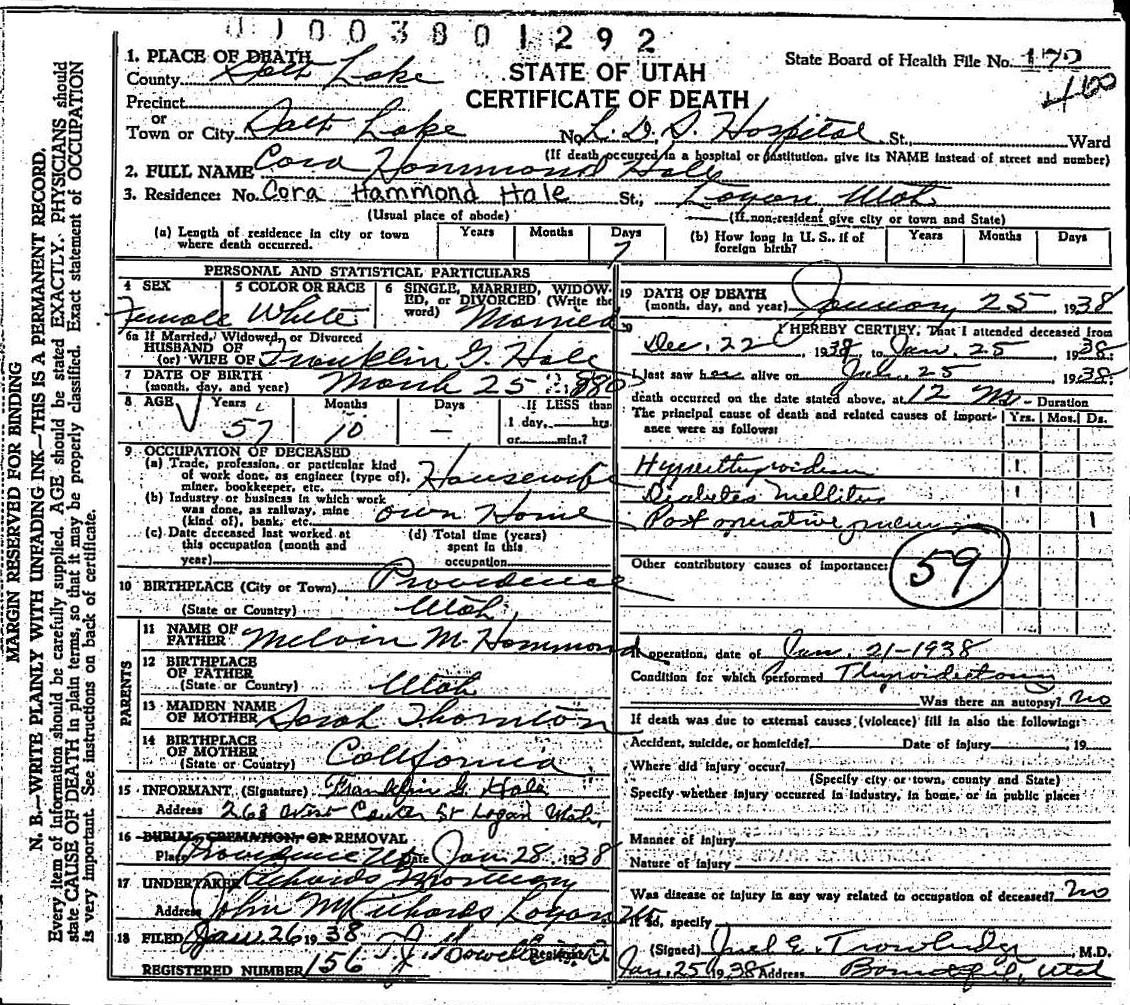 01003801292
1. PLACE OF DEATH
County Salt Lake
STATE OF UTAH
CERTIFICATE OF DEATH
State Board of Health File No. 170
400
Precinct
or
Town or City Salt Lake No. L. D. S. Hospital St., Ward
(If death occurred in a hospital or institution, give its NAME instead of street and number)
2. FULL NAME Cora Hammond Hale
3. Residence: No. Cora Hammond Hale St., Logan Utah
(Usual place of abode) (If non-resident give city or town and State)
(a) Length of residence in city or town where death occurred. Years Months Days 7
(b) How long in U. S., if of foreign birth? Years Months Days
PERSONAL AND STATISTICAL PARTICULARS
4 SEX Female
5 COLOR OR RACE White
6 SINGLE, MARRIED, WIDOWED, or DIVORCED (Write the word) Married
6a If Married, Widowed, or Divorced
HUSBAND OF
(or) WIFE OF Franklin G. Hale
7 DATE OF BIRTH
(month, day, and year) March 25 1880
8 AGE Years 57 Months 10 Days —
If LESS than
1 day, hrs.
or min.?
9 OCCUPATION OF DECEASED
(a) Trade, profession, or particular kind of work done, as engineer (type of), miner, bookkeeper, etc. Housewife
(b) Industry or business in which work was done, as railway, mine (kind of), bank, etc. Own Home
(c) Date deceased last worked at this occupation (month and year)
(d) Total time (years) spent in this occupation
10 BIRTHPLACE (City or Town) Providence
(State or Country) Utah
PARENTS
11 NAME OF FATHER Melvin M. Hammond
12 BIRTHPLACE OF FATHER
(State or Country) Utah
13 MAIDEN NAME OF MOTHER Sarah Thornton
14 BIRTHPLACE OF MOTHER
(State or Country) California
15 INFORMANT (Signature) Franklin G. Hale
Address 268 West Center St Logan Utah,
16 BURIAL, CREMATION, OR REMOVAL
Place Providence Ut Date Jan 28, 1938
17 UNDERTAKER Richards Mortuary
Address John M Richards Logan Ut
18 FILED Jan. 26 1938 Registrar
REGISTERED NUMBER 156
19 DATE OF DEATH
(month, day, and year) January 25, 1938
20 I HEREBY CERTIFY, That I attended deceased from
Dec. 22, 1938 to Jan. 25 1938
I last saw her alive on 25, 1938
death occurred on the date stated above, at 12 M. Duration
The principal cause of death and related causes of importance were as follows: Yrs. Mos. Ds.
Hyperthyroidism 1
Diabetes Mellitus 1
Post operative 1
Other contributory causes of importance: 59
If operation, date of Jan. 21-1938
Condition for which performed Thyroidectomy
Was there an autopsy? no
If death was due to external causes (violence) fill in also the following:
Accident, suicide, or homicide? Date of injury 19
Where did injury occur?
(Specify city or town, county and State)
Specify whether injury occurred in industry, in home, or in public place:
Manner of injury
Nature of injury
Was disease or injury in any way related to occupation of deceased? no
If so, specify
(Signed) E. Trowbridge, M.D.
Jan. 25 1938 Address Bountiful, Utah
MARGIN RESERVED FOR BINDING
N. B.—WRITE PLAINLY WITH UNFADING INK—THIS IS A PERMANENT RECORD.
Every item of information should be carefully supplied. AGE should be stated EXACTLY. PHYSICIANS should
state CAUSE OF DEATH in plain terms, so that it may be properly classified. Exact statement of OCCUPATION
is very important. See instructions on back of certificate.